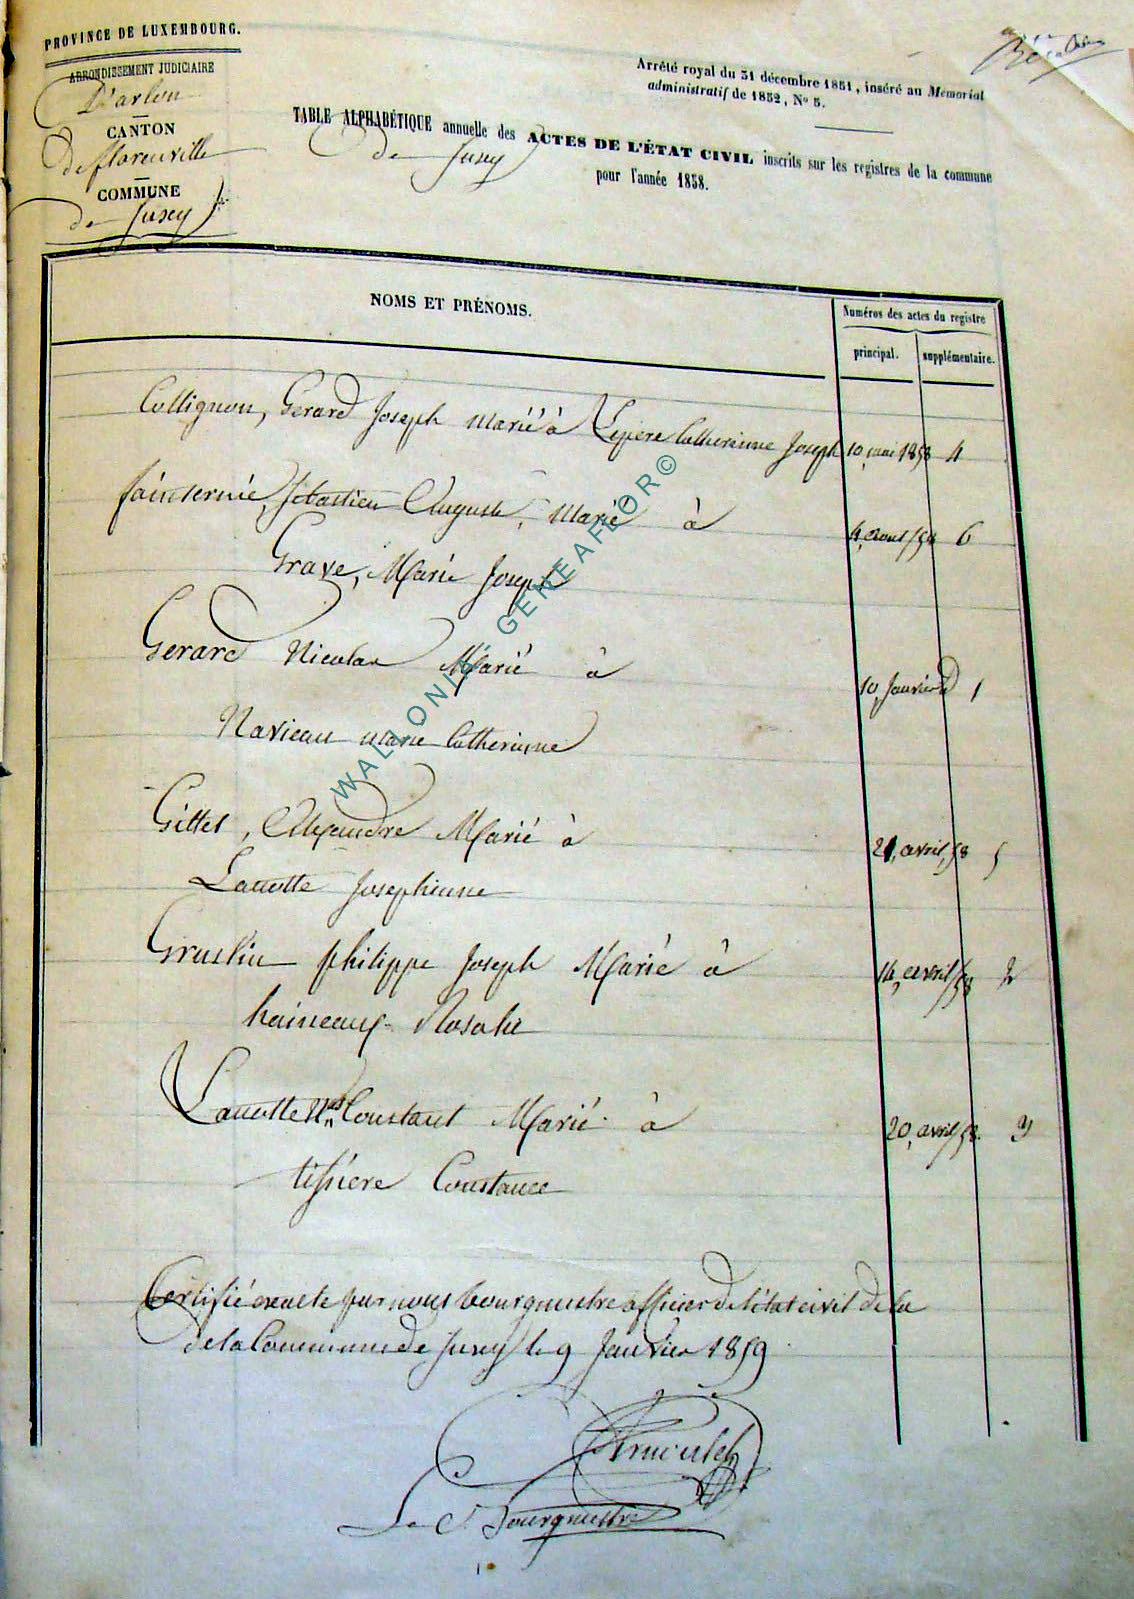 PROVINCE DE LUXEMBOURG.
ARRONDISSEMENT JUDICIAIRE
D'arlon
CANTON
de florenville
COMMUNE
de Jusey
Arrêté royal du 31 décembre 1851, inséré au Mémorial
administratif de 1852, N° 5.
TABLE ALPHABÉTIQUE annuelle des ACTES DE L'ÉTAT CIVIL inscrits sur les registres de la commune
de Jusey
pour l'année 1858.
NOMS ET PRÉNOMS.
Numéros des actes du registre
principal. supplémentaire.
Collignon, Gerard Joseph marié à Lepere Catherinne Joseph 10, mai 1858 4
Sebastien Auguste, Marié à
4, aout /58 6
Grave, Marie Joseph
Gerard Nicolas Marié à
10, Janvier d 1
Navieau marie Catherinne
Gittet, Alexandre Marié à
21, avril, 58 5
Lanotte Josephinne
Gruslin philippe Joseph Marié à
14, avril/58 2
haineaux Rosalie
Lanotte Constant Marié à
20, avril/58. 3
tissiere Constance
Certifié exacte par nous bourgmestre officier de l'état civil de la
de la Commune de Jusey le 9 Janvier 1859
Le Bourgmestre
WALLONIE GENEAFLOR©